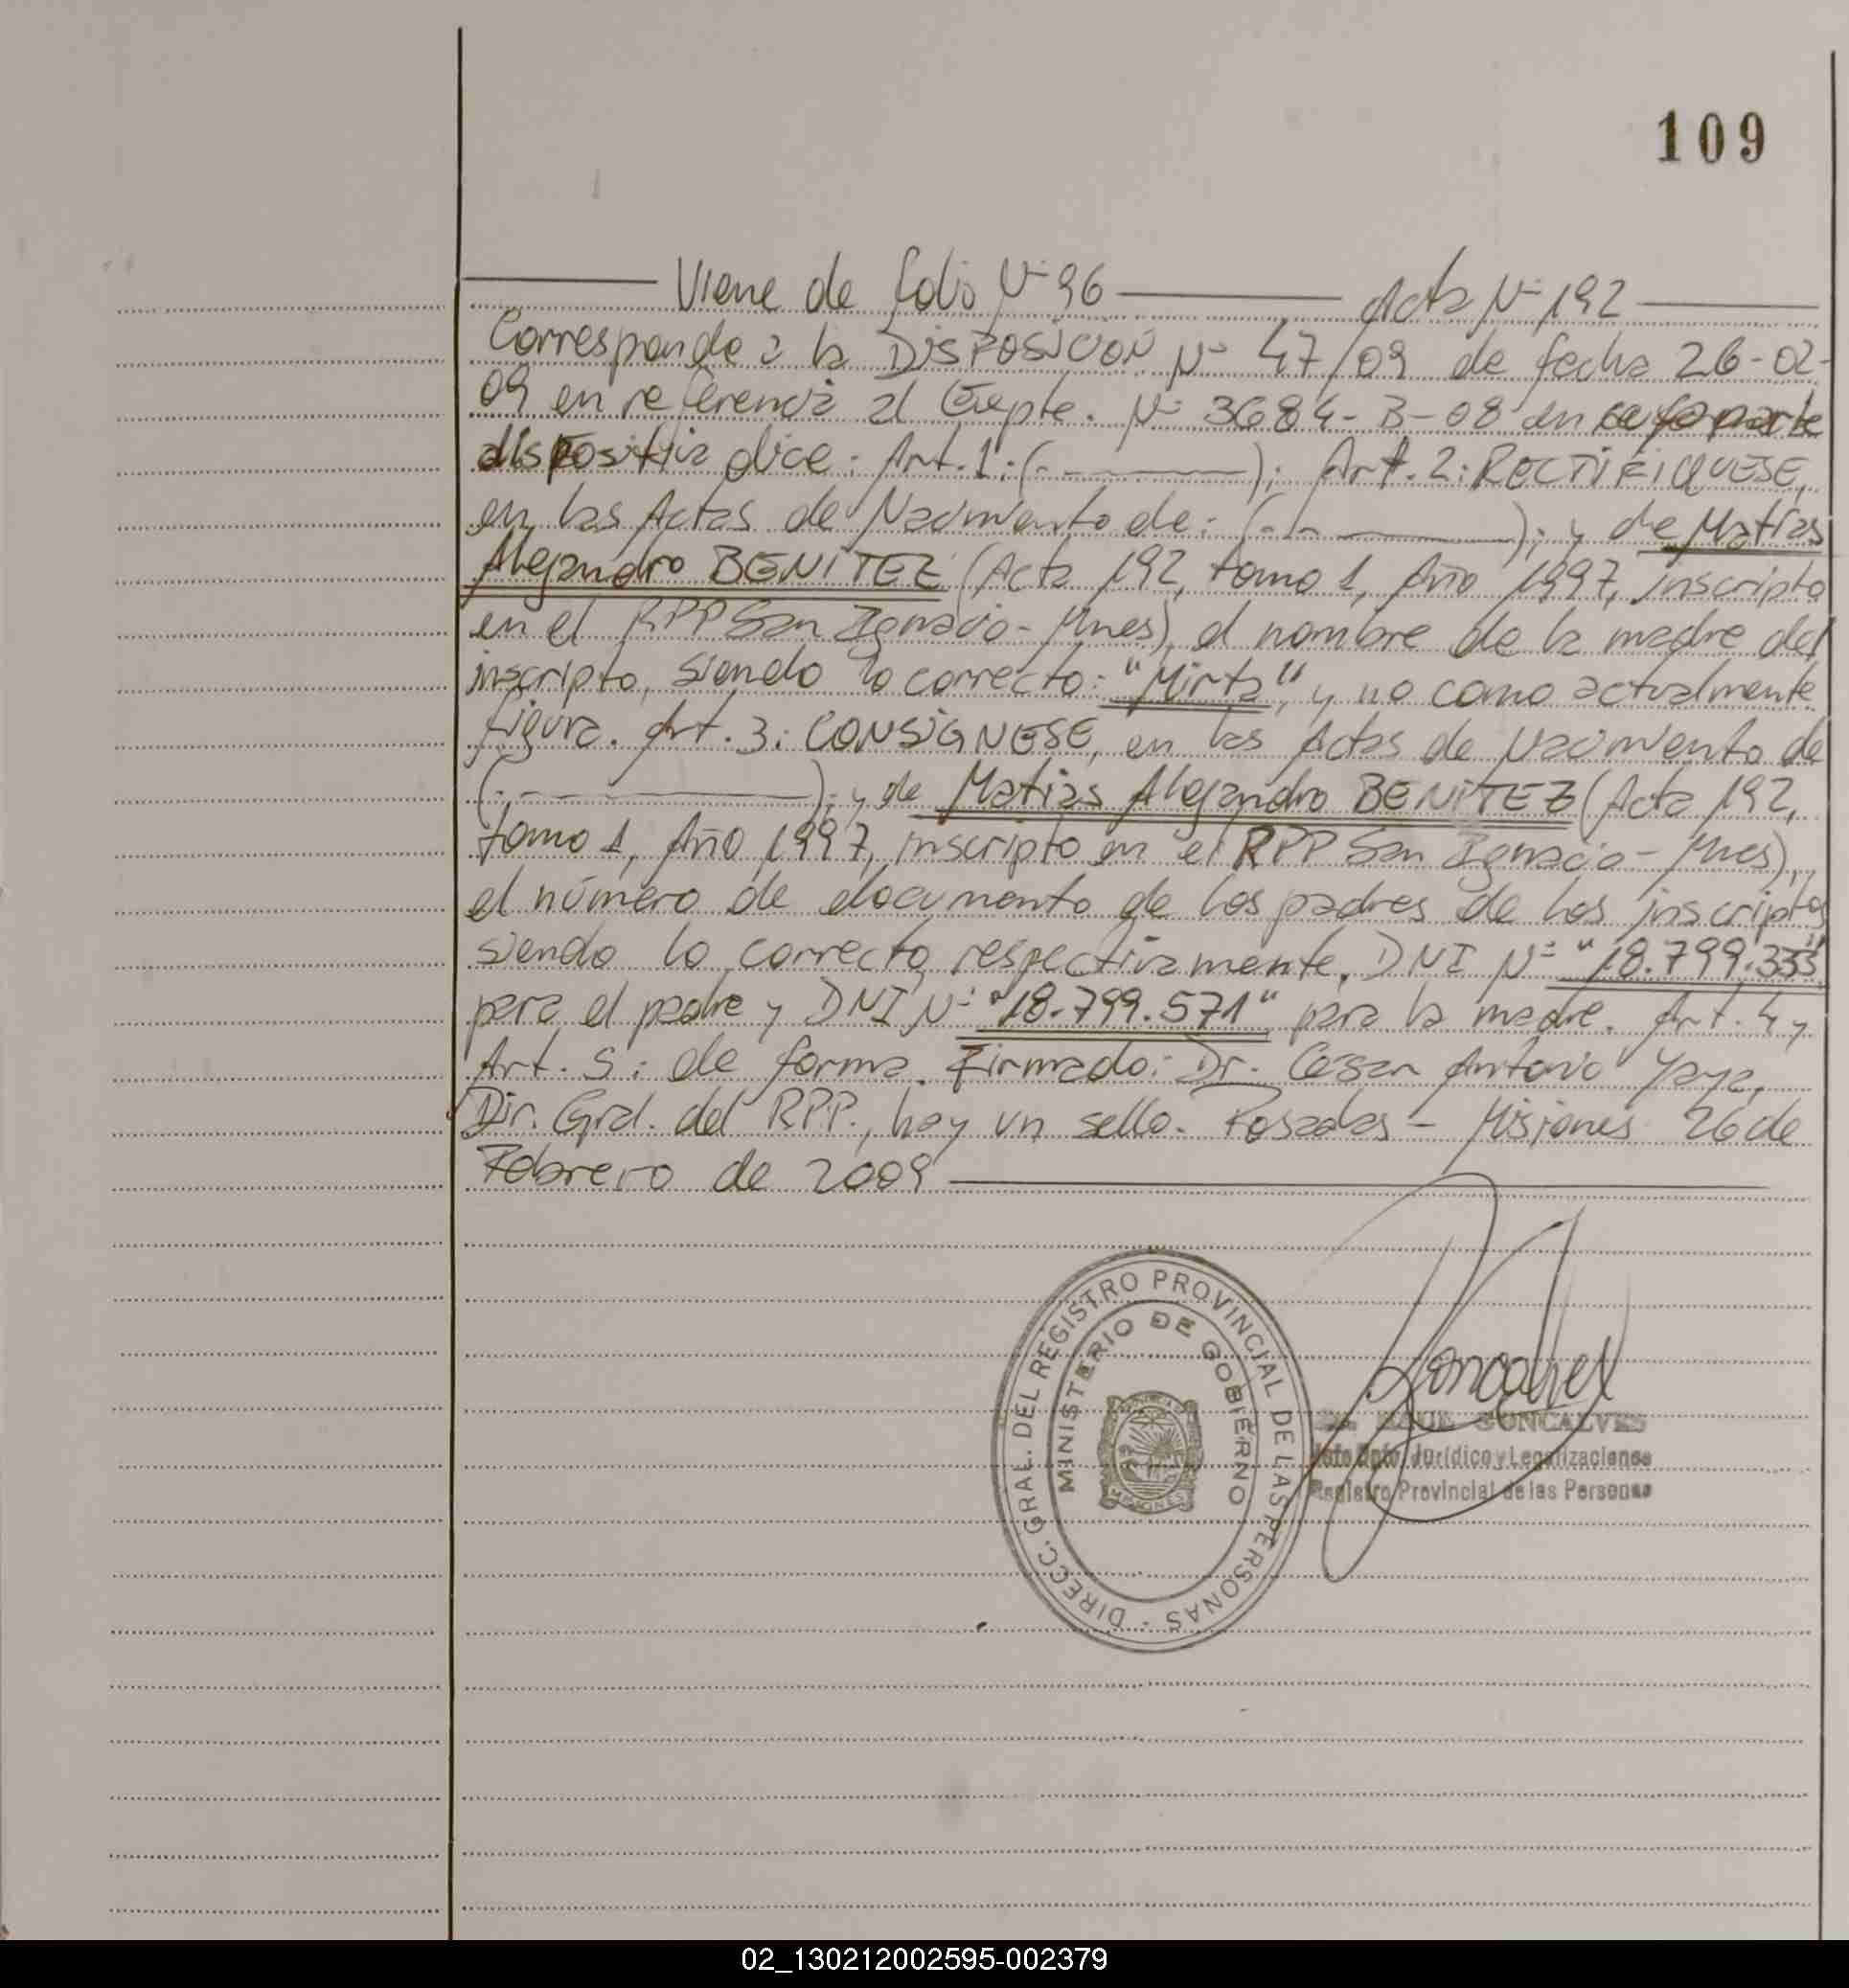 109
Viene de folio Nº 96 Acta Nº 192
Corresponde a la DISPOSICIÓN Nº 47/09 de fecha 26-02-
09 en referencia al Expte. Nº 3684-B-08 en cuya parte
dispositiva dice: Art. 1: (. ———); Art. 2: RECTIFIQUESE,
en las Actas de Nacimiento de: (.-.- ———); y de Matías
Alejandro BENITEZ (Acta 192, tomo 1, Año 1997, inscripto
en el RPP San Ignacio - Mnes), el nombre de la madre del
inscripto, siendo lo correcto: "Mirta", y no como actualmente
figura. Art. 3: CONSIGNESE, en las Actas de Nacimiento de
(.- ———); y de Matias Alejandro BENITEZ (Acta 192,
tomo 1, Año 1997, inscripto en el RPP San Ignacio - Mnes),
el número de documento de los padres de los inscriptos
siendo lo correcto, respectivamente, DNI Nº "18.799.333"
para el padre y DNI Nº "18.799.571" para la madre. Art. 4 y
Art. 5: de forma. Firmado: Dr. Cesar Antonio Yaya,
Dir. Gral. del RPP., hay un sello. Posadas - Misiones 26 de
Febrero de 2009
DIRECC. GRAL. DEL REGISTRO PROVINCIAL DE LAS PERSONAS -
MINISTERIO DE GOBIERNO
MISIONES
Goncalves
RAUL GONCALVES
Jefe Dpto. Jurídico y Legalizaciones
Registro Provincial de las Personas
02_130212002595-002379